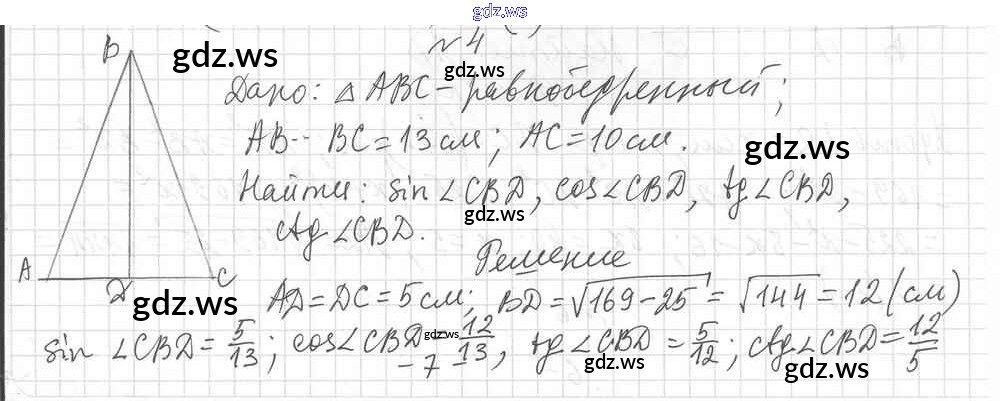 gdz.ws
№4
B gdz.ws
gdz.ws
Дано: △ABC - равнобедренный;
AB = BC = 13 см; AC = 10 см.
gdz.ws
Найти: sin ∠CBD, cos ∠CBD, tg ∠CBD,
gdz.ws
ctg ∠CBD.
Решение
A D C
gdz.ws
AD = DC = 5 см; BD = √169-25 = √144 = 12 (см)
sin ∠CBD = 5/13; cos ∠CBD = 12/13, tg ∠CBD = 5/12; ctg ∠CBD = 12/5
gdz.ws
- 7 -
gdz.ws
gdz.ws